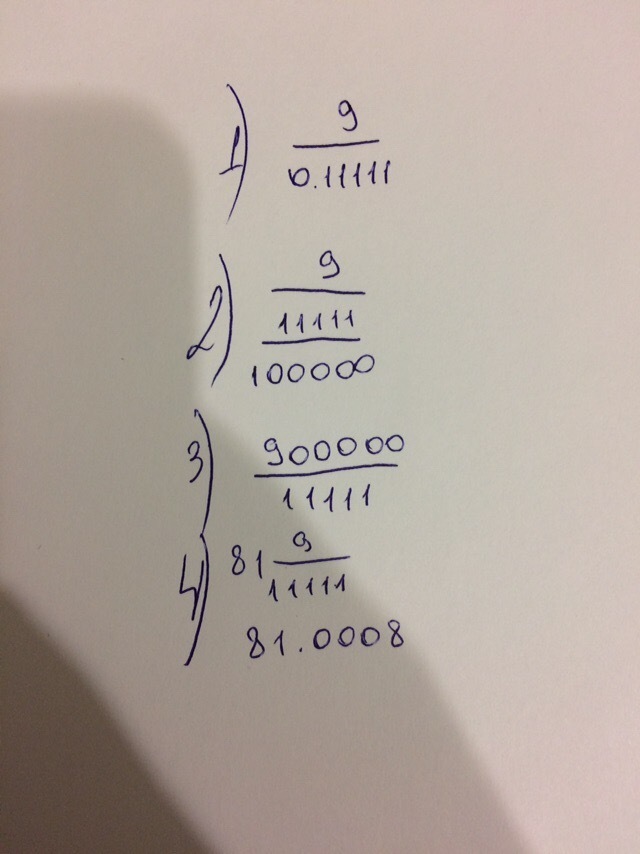 1) 9
0.11111
2) 9
11111
100000
3) 900000
11111
4) 81 9
11111
81.0008